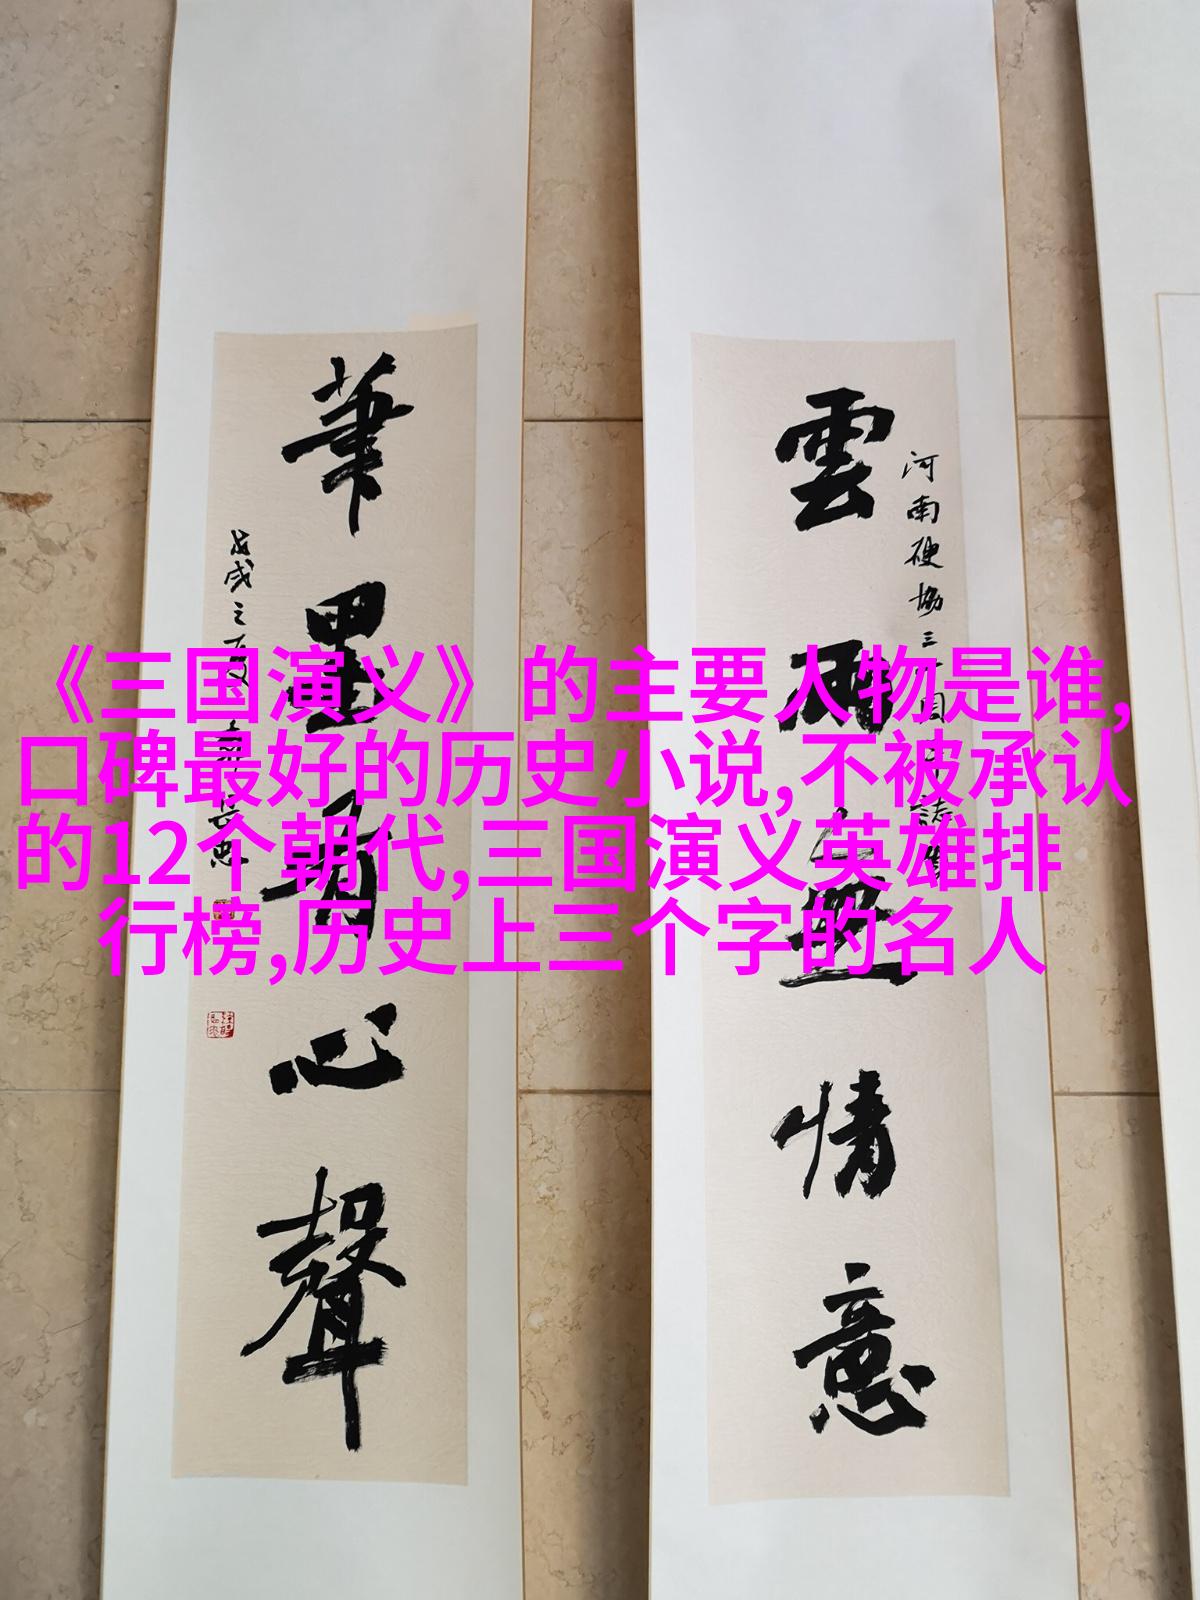 《三国演义》的主要人物是谁,
口碑最好的历史小说,不被承认
的12个朝代,三国演义英雄排
行榜,历史上三个字的名人
雲雨無情意
河南硬協三
筆墨有心聲
戊戌之夏